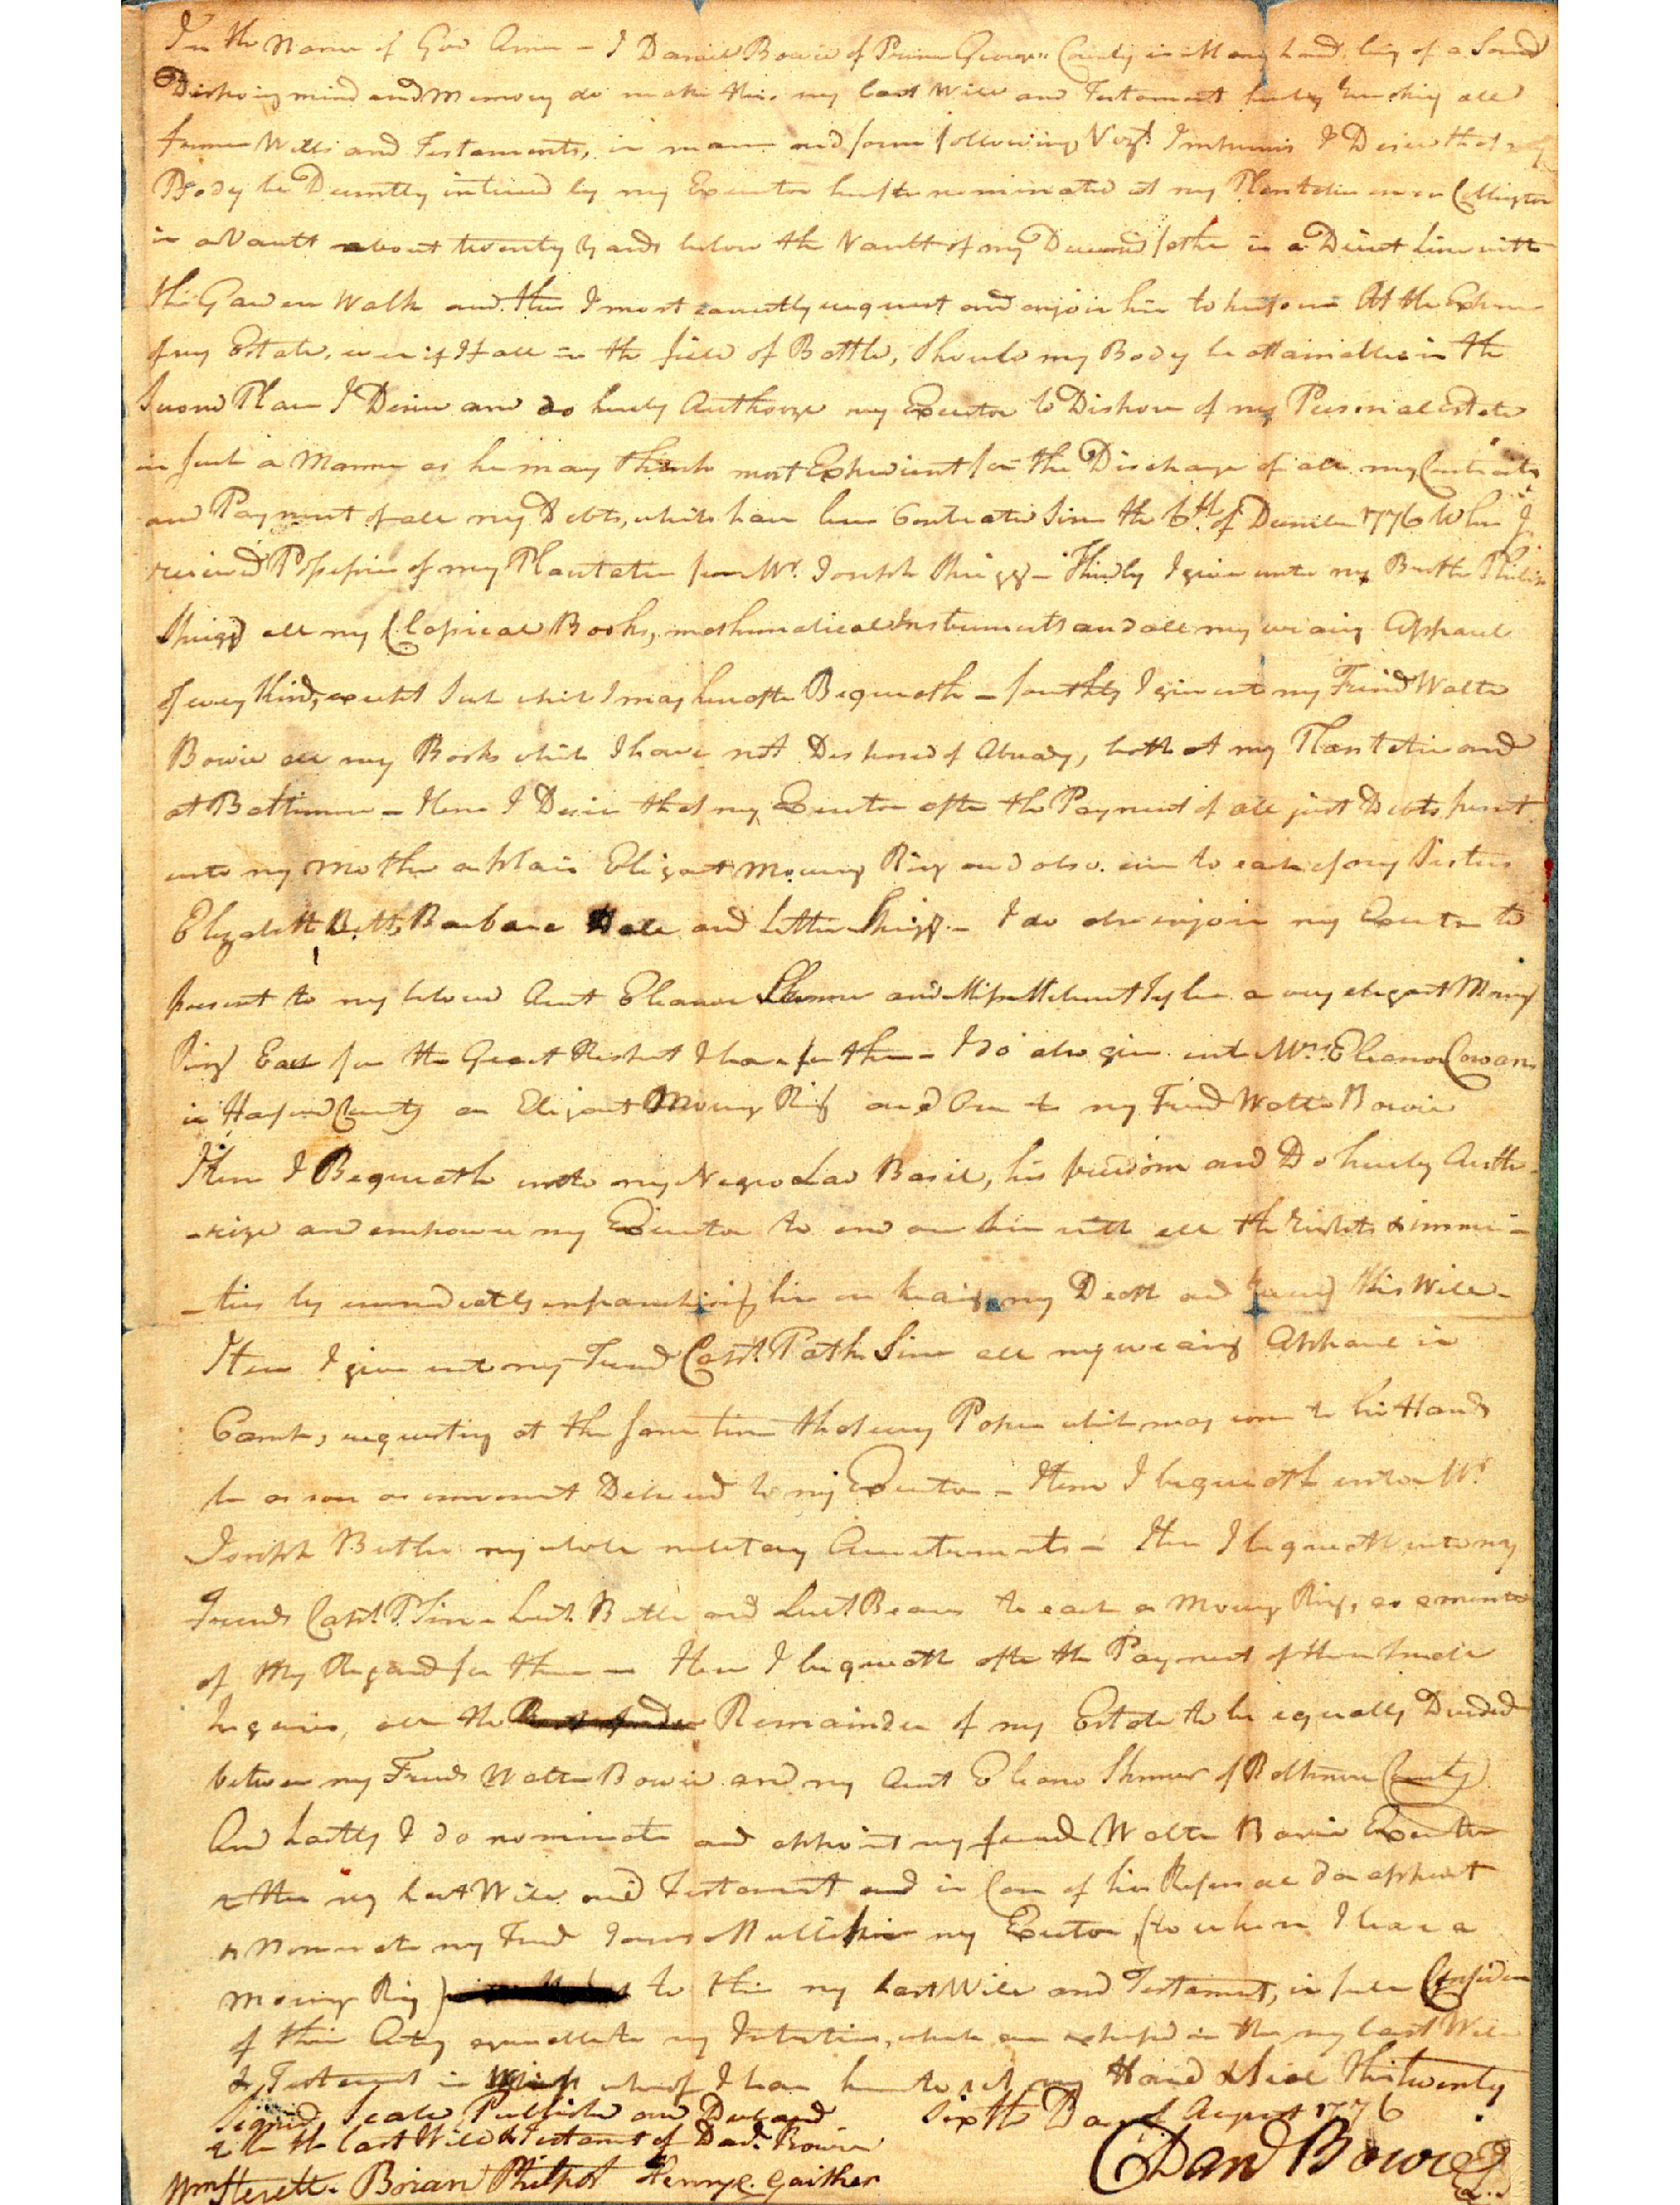 In the Name of God Amen - I Daniel Bowie of Prince George's County in Maryland being of a Sound
Disposing mind and Memory do make this my last Will and Testament hereby Revoking all
former Wills and Testaments, in manner and form following Vizt. Imprimis I Desire that my
Body be Decently intered by my Executor hereafter nominated at my Plantation near Collington
in a Vault about twenty Yards below the Vault of my Deceased father in a Direct Line with
the Garden Walk and this I most earnestly request and enjoin him to perform At the Expence
of my Estate, even if I fall in the field of Battle, Should my Body be attainable in the
Second Place I Desire and do hereby Authorize my Executor to Dispose of my Personal Estate
in such a Manner as he may think most Expedient for the Discharge of all my Contracts
and Payment of all my Debts, which have been Contracted Since the 6th of Decemr 1776 When I
received Possession of my Plantation from Mr. Joseph Sprigg - Thirdly I give unto my Brother Philip
Sprigg all my Classical Books, mathematical Instruments and all my wearing Apparel
of every Kind, except Such which I may hereafter Bequeath - fourthly I give unto my Friend Walter
Bowie all my Books which I have not Disposed of Already, both at my Plantation and
at Baltimore - Item I Desire that my Executor after the Payment of all just Debts present
unto my Mother a plain Eligant Mourng Ring and also one to each of my Sisters
Elizabeth Belt, Barbara Hall and Lettice Sprigg - I do also enjoin my Executor to
present to my beloved Aunt Eleanor Skinner and Miss Millicent Tyler a very elegant Mourng
Ring Each for the Great Respect I have for them - I do also give unto Mrs. Eleanor Cowan
in Harford County an Eligant Mourng Ring and One to my Friend Walter Bowie
Item I Bequeath unto my Negro Lad Basil, his freedom and Do hereby Autho-
-rize and empower my Executor to endow him with all the Rights & immuni-
-ties by immediately enfranchising him on hearing my Death and having this Will -
Item I give unto my Friend Capt. Patk Sim all my wearing Apparel in
Camp, requesting at the same time that every Paper which may come to his Hands
be as soon as convenient Delivered to my Executor - Item I bequeath unto Mr
Joseph Butler my whole military Accoutrements - Item I bequeath unto my
Friends Capt. P. Sim - Lieut. Butler and Lieut Beans to each a Mourng Ring, as a memento
of My Regard for them - Item I bequeath after the Payment of these small
Legacies, all the Remainder of my Estate to be equally Divided
between my Friend Walter Bowie and my Aunt Eleanor Skinner of Baltimore County
And Lastly I do nominate and appoint my friend Walter Bowie Executor
to this my last Will and Testament and in Case of his Refusal do appoint
& Nominate my Friend James Mullikin my Executor, (to whom I leave a
Mourng Ring) to this my Last Will and Testament, in full Confidence
of their Acting agreeable to my Intention, which are expressed in this my last Will
& Testament in whereof I have hereunto set my Hand & Seal this twenty
Signed, Sealed, Published and Declared Sixth Day of August 1776
to be the last Will & Testament of Danl. Bowie
Wm Sterett - Brian Philpot Henry C. Gaither Danl Bowie